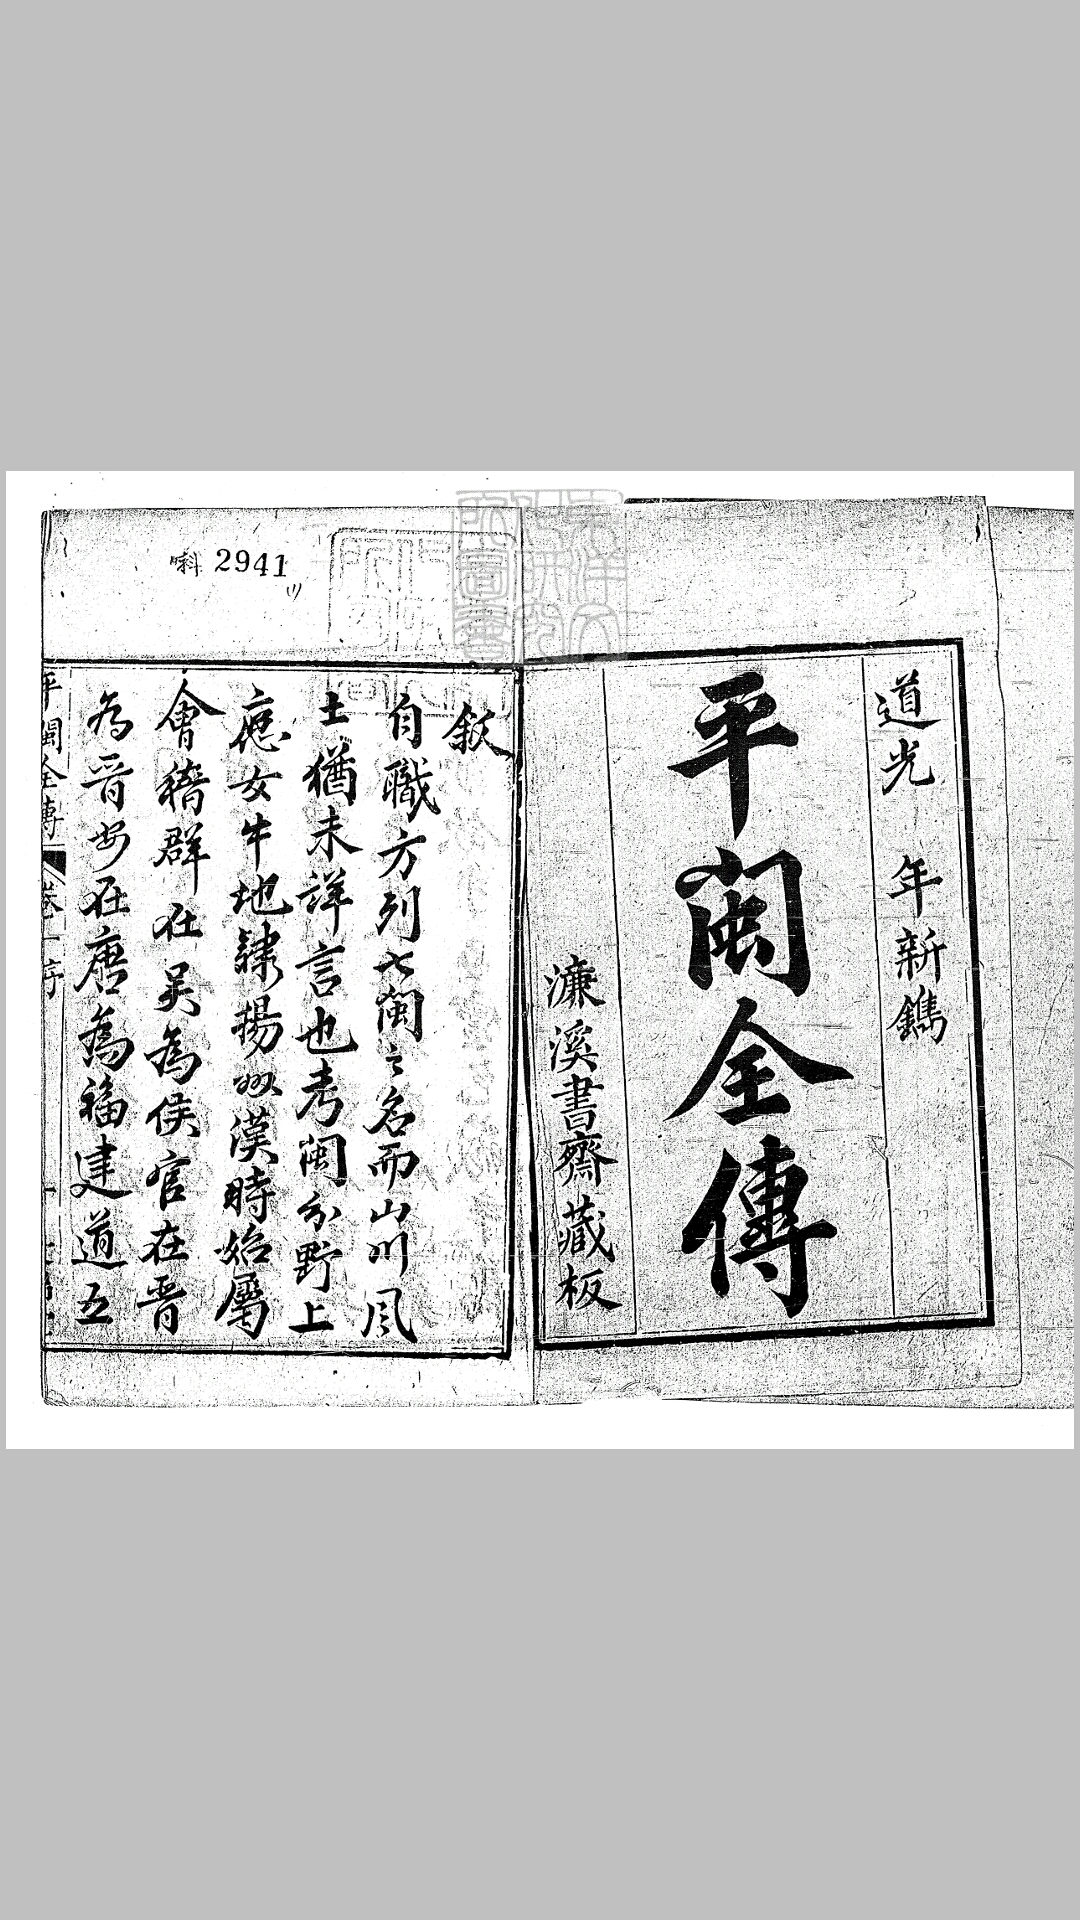 道光 年新鐫
平閩全傳
濂溪書齋藏板
2941
敍
自職方列七閩之名而山川风
土猶未詳言也考閩分野上
應女牛地隷揚州漢時始屬
會稽群在吴為侯官在晋
為晋安在唐為福建道五
平閩全傳 卷一序